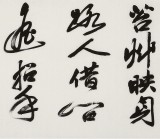 苔艸映身
路人借问
遥招手